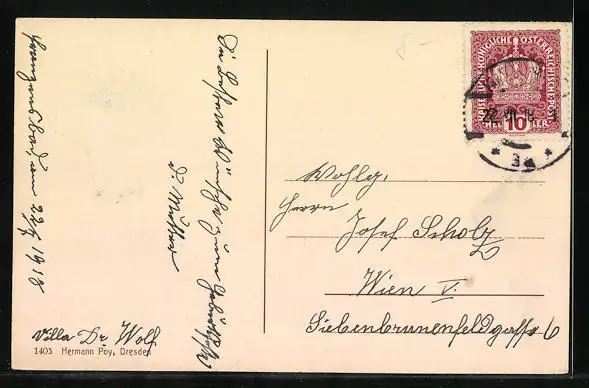 22/4 1918
Die besten Wünsche zum
d. Mutter
Villa Dr. Wolf
1403 Hermann Poy, Dresden
KAISERLICHE KÖNIGLICHE ÖSTERREICHISCHE POST
10 HELLER 10
Wohlg.
Herrn
Josef Scholz
Wien V.
Siebenbrunnenfeldgasse 6